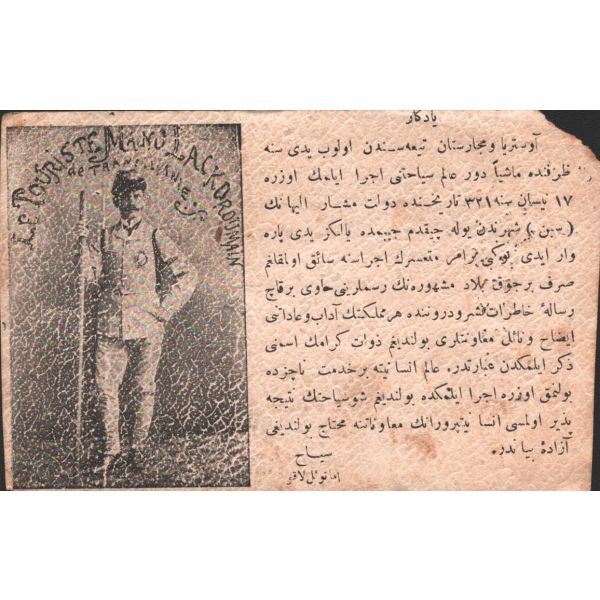 LE TOURISTE MANU LACK OROUMAIN
de TRANSILVANIE
يادكار
آوستريا ومجارستان تبعه سندن اولوب يدى سنه
ظرفنده ماشياً دور عالم سياحتى اجرا ايلمك اوزره
١٧ نيسان سنه ٣٢١ تاريخنده دولت مشار اليهانك
شهرندن يوله چيقدم جيبمده يالكز يدى پاره
وار ايدى بوكى مرامر متعسرك اجراسنه سائق اولمقلغم
صرف برچوق بلاد مشهوره نك رسملرينى حاوى برقاچ
رسالۀ خاطرات نشر ودروننده هر مملكتك آداب وعاداتنى
ايضاح ونائل معاونتلرى بولنديغم ذوات كرامك اسمنى
ذكر ايلمكدن عبارتدر. عالم انسانيته برخدمت ناچزده
بولنمق اوزره اجرا ايلمكده بولنديغم شو سياحتك نتيجه
پذير اولمسى انسانيتپرورانك معاوناتنه محتاج بولنديغى
آزادۀ بياندر.
سياح
امانوئل لاقى